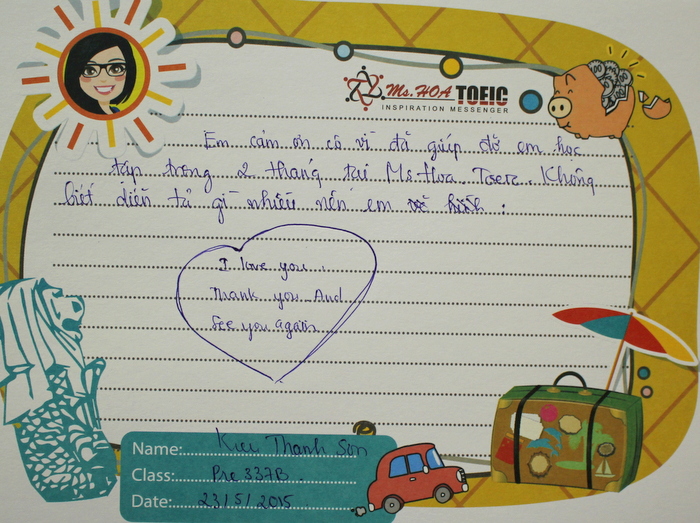 Ms. HOA TOEIC
INSPIRATION MESSENGER
Em cảm ơn cô vì đã giúp đỡ em học
tập trong 2 tháng tại Ms Hoa Toeic. Không
biết diễn tả gì nhiều nên em
I love you.
Thank you And
See you again
Name: Kiều Thanh Sơn
Class: Pre 337B.
Date: 23/5/2015